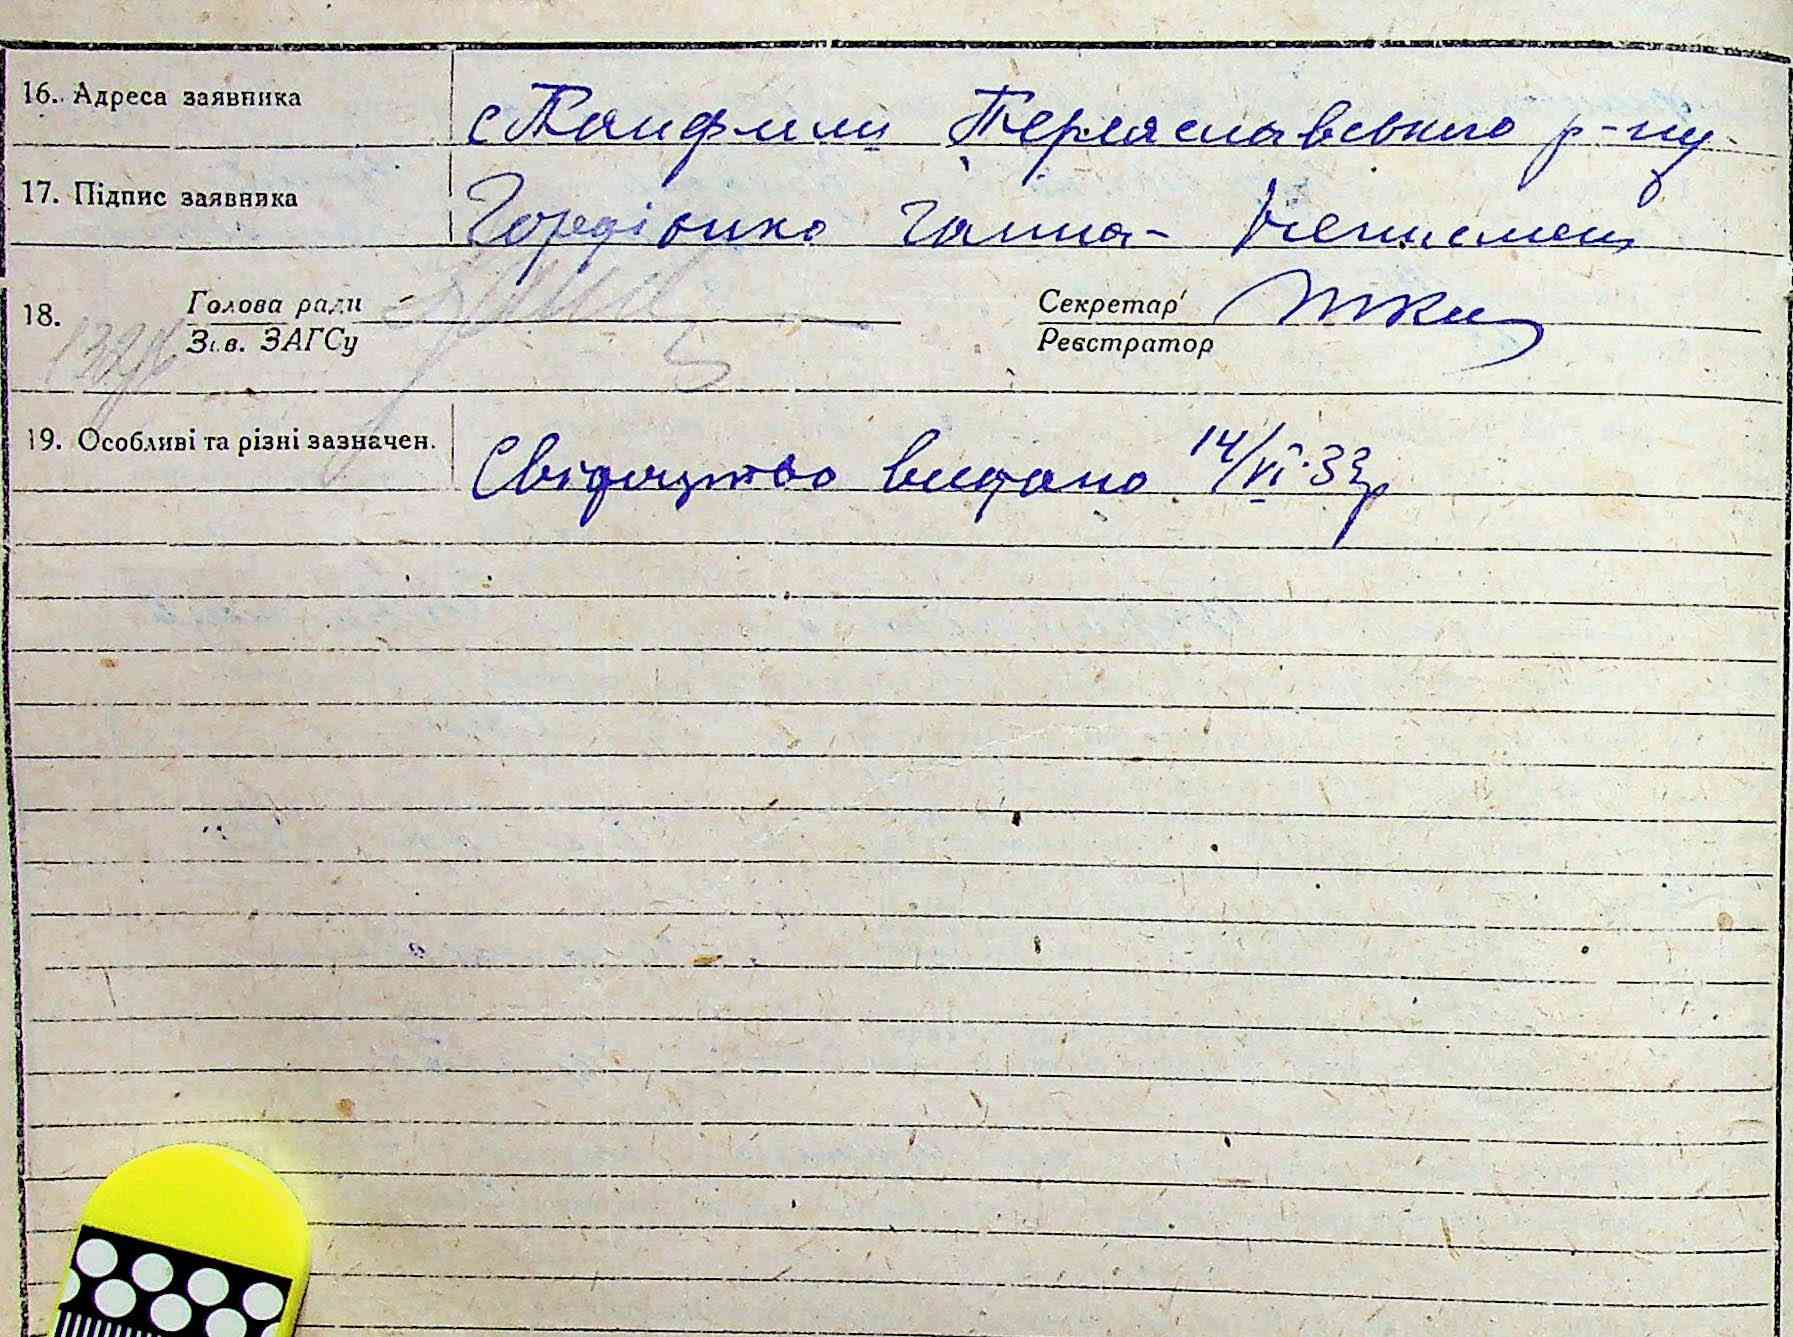 16. Адреса заявника с Панфили Переяславського р-ну
17. Підпис заявника Гордієнко Ганна - Неписмен
18. Голова ради Секретар
Зав. ЗАГСу Реєстратор
19. Особливі та різні зазначен. Свідоцтво видано 14/VI-33р